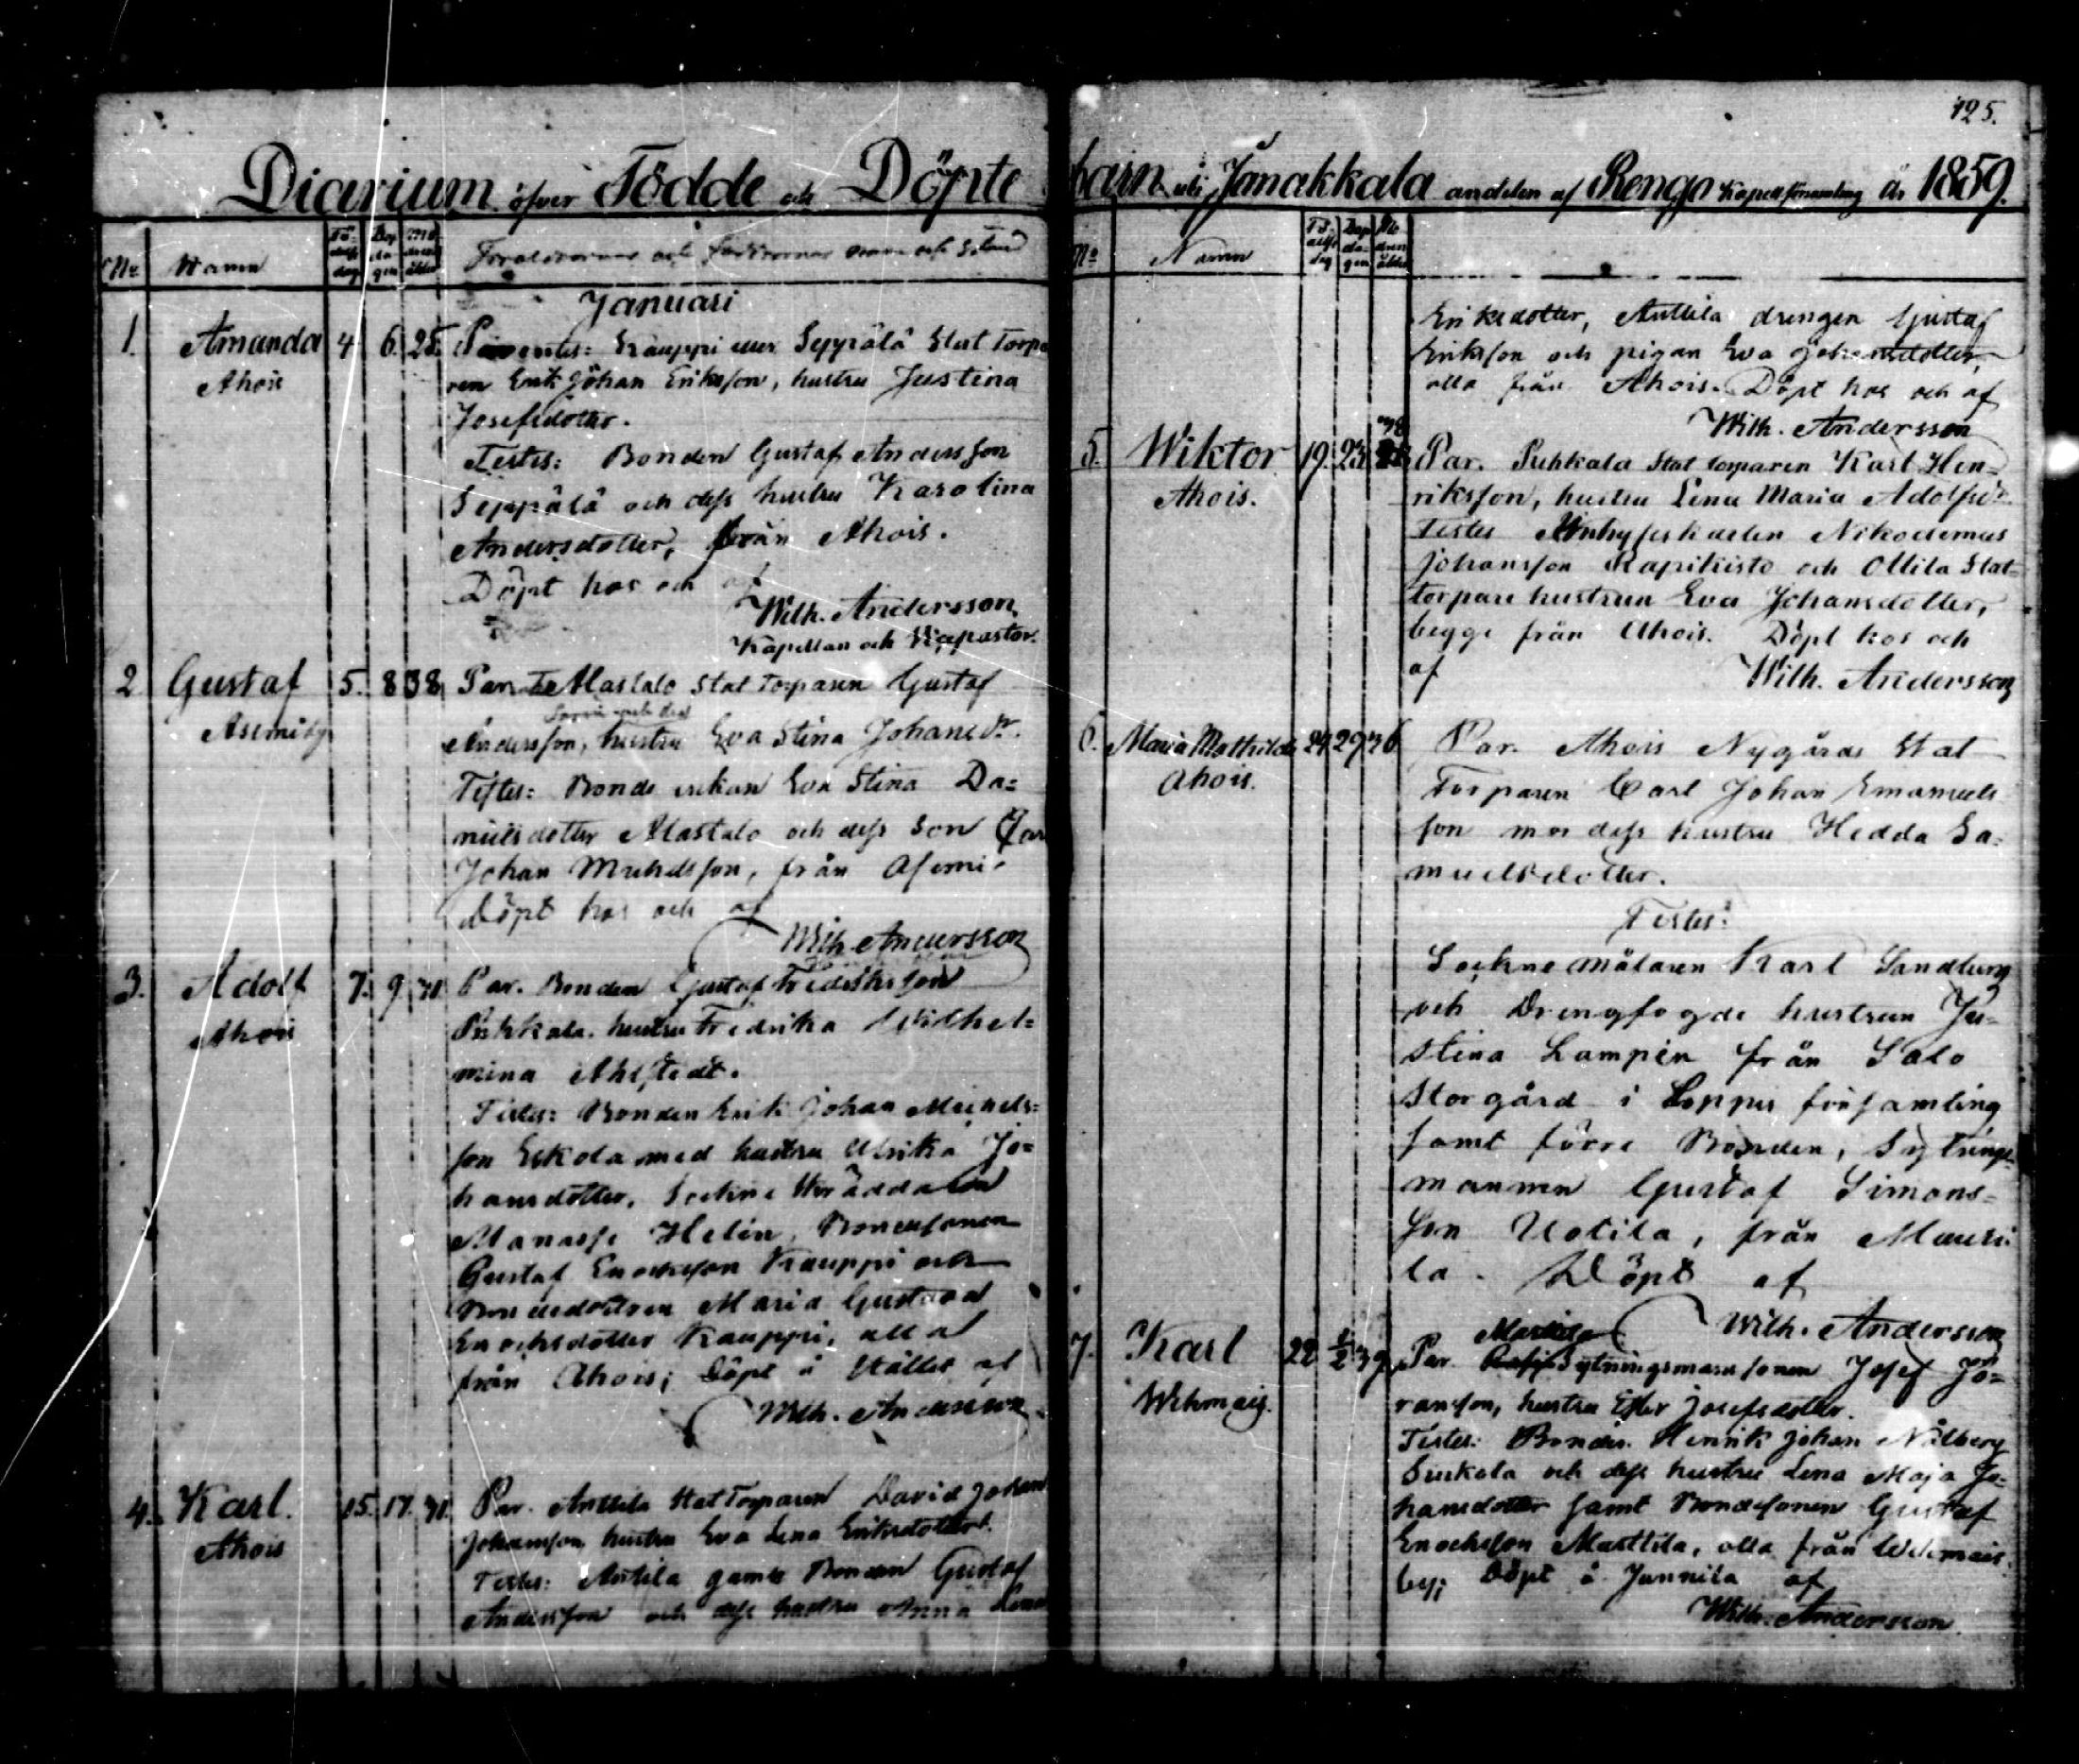 125.
Diarium öfver Födde och Döpte barn uti Janakkala andelen af Rengo Kapellförsamling år 1859.
No Namn Fö-delse dag Dop da-gen Mo-drens ålder Föräldrarnes och faddrarnes namn och stånd
Januari
1. Amanda 4. 6. 25. Parentes: Kauppi eller Seppälä Stat Torpa
Ahois ren Erik Johan Eriksson, hustru Justina
Josefsdotter.
Testes: Bonden Gustaf Andersson
Seppälä och dess hustru Karolina
Andersdotter, från Ahois.
Döpt hos och af
Wilh. Andersson
Kapellan och V. pastor.
2 Gustaf 5. 8 38 Mastalo Stat Torparen Gustaf
Asemi by Andersson, hustru Eva Stina Johansdr.
Testes: Bonde enkan Eva Stina Da=
nielsdotter Mastalo och dess son Carl
Johan Michelsson, från Asemi.
Döpt hos och af
Wilh. Andersson
3. Adolf 7. 9. 31. Par. Bonden Gustaf Fredriksson
Ahois Puhkala. hustru Fredrika Wilhel=
mina Ahlstedt.
Testes: Bonden Erik Johan Michels=
son Eskola med hustru Ulrika Jo=
hansdotter, Sockne Skräddaren
Manasse Helin, Bondesonen
Gustaf Enochsson Kauppi och
Bondedottren Maria Gustava
Enochsdotter Kauppi, alla
från Ahois; Döpt å Stället af
Wilh. Andersson
4. Karl. 15. 17. 31. Par. Anttila Stat Torparen David Johan
Ahois Johansson, hustru Eva Lena Eriksdotter.
Testes: Anttila gamle Bonden Gustaf
Andersson och dess hustru Anna Lena
No Namn Fö-delse dag Dop da-gen Mo-drens ålder
Eriksdotter, Anttila drengen Gustaf
Eriksson och pigan Eva Johansdotter,
alla från Ahois. Döpt hos och af
Wilh. Andersson
5. Wiktor 19. 23. Par. Puhkala Stat torparen Karl Hen=
Ahois. riksson, hustru Lena Maria Adolfsdr.
Testes Inhyseskarlen Nikodemus
Johansson Rapikisto och Ottila Stat=
torpare hustrun Eva Johansdotter,
begge från Ahois. Döpt hos och
af Wilh. Andersson
6. Maria Mathilda 24 29 36 Par. Ahois Nygårds Stat
Ahois. Torparen Carl Johan Emanuels
son mor dess hustru Hedda Sa=
muelsdotter.
Testes:
Socknemålaren Karl Sandberg
och Drengfogde hustrun Ju=
stina Lampén från Salo
Storgård i Loppis församling
samt förre Bonden, Sytnings=
mannen Gustaf Simons=
son Uotila, från Mauri=
la. Döpt af
Wilh. Andersson
7. Karl 22 1/2 39 Par. Markila Sytningsmans sonen Josef Jö=
Wehmais. ransson, hustru Ester Josefsdotter.
Testes: Bonden Henrik Johan Nålberg
Suikala och dess hustru Lena Maja Jo=
hansdotter samt Bondesonen Gustaf
Enochsson Marttila, alla från Wehmais
by; Döpt å Junnila af
Wilh. Andersson